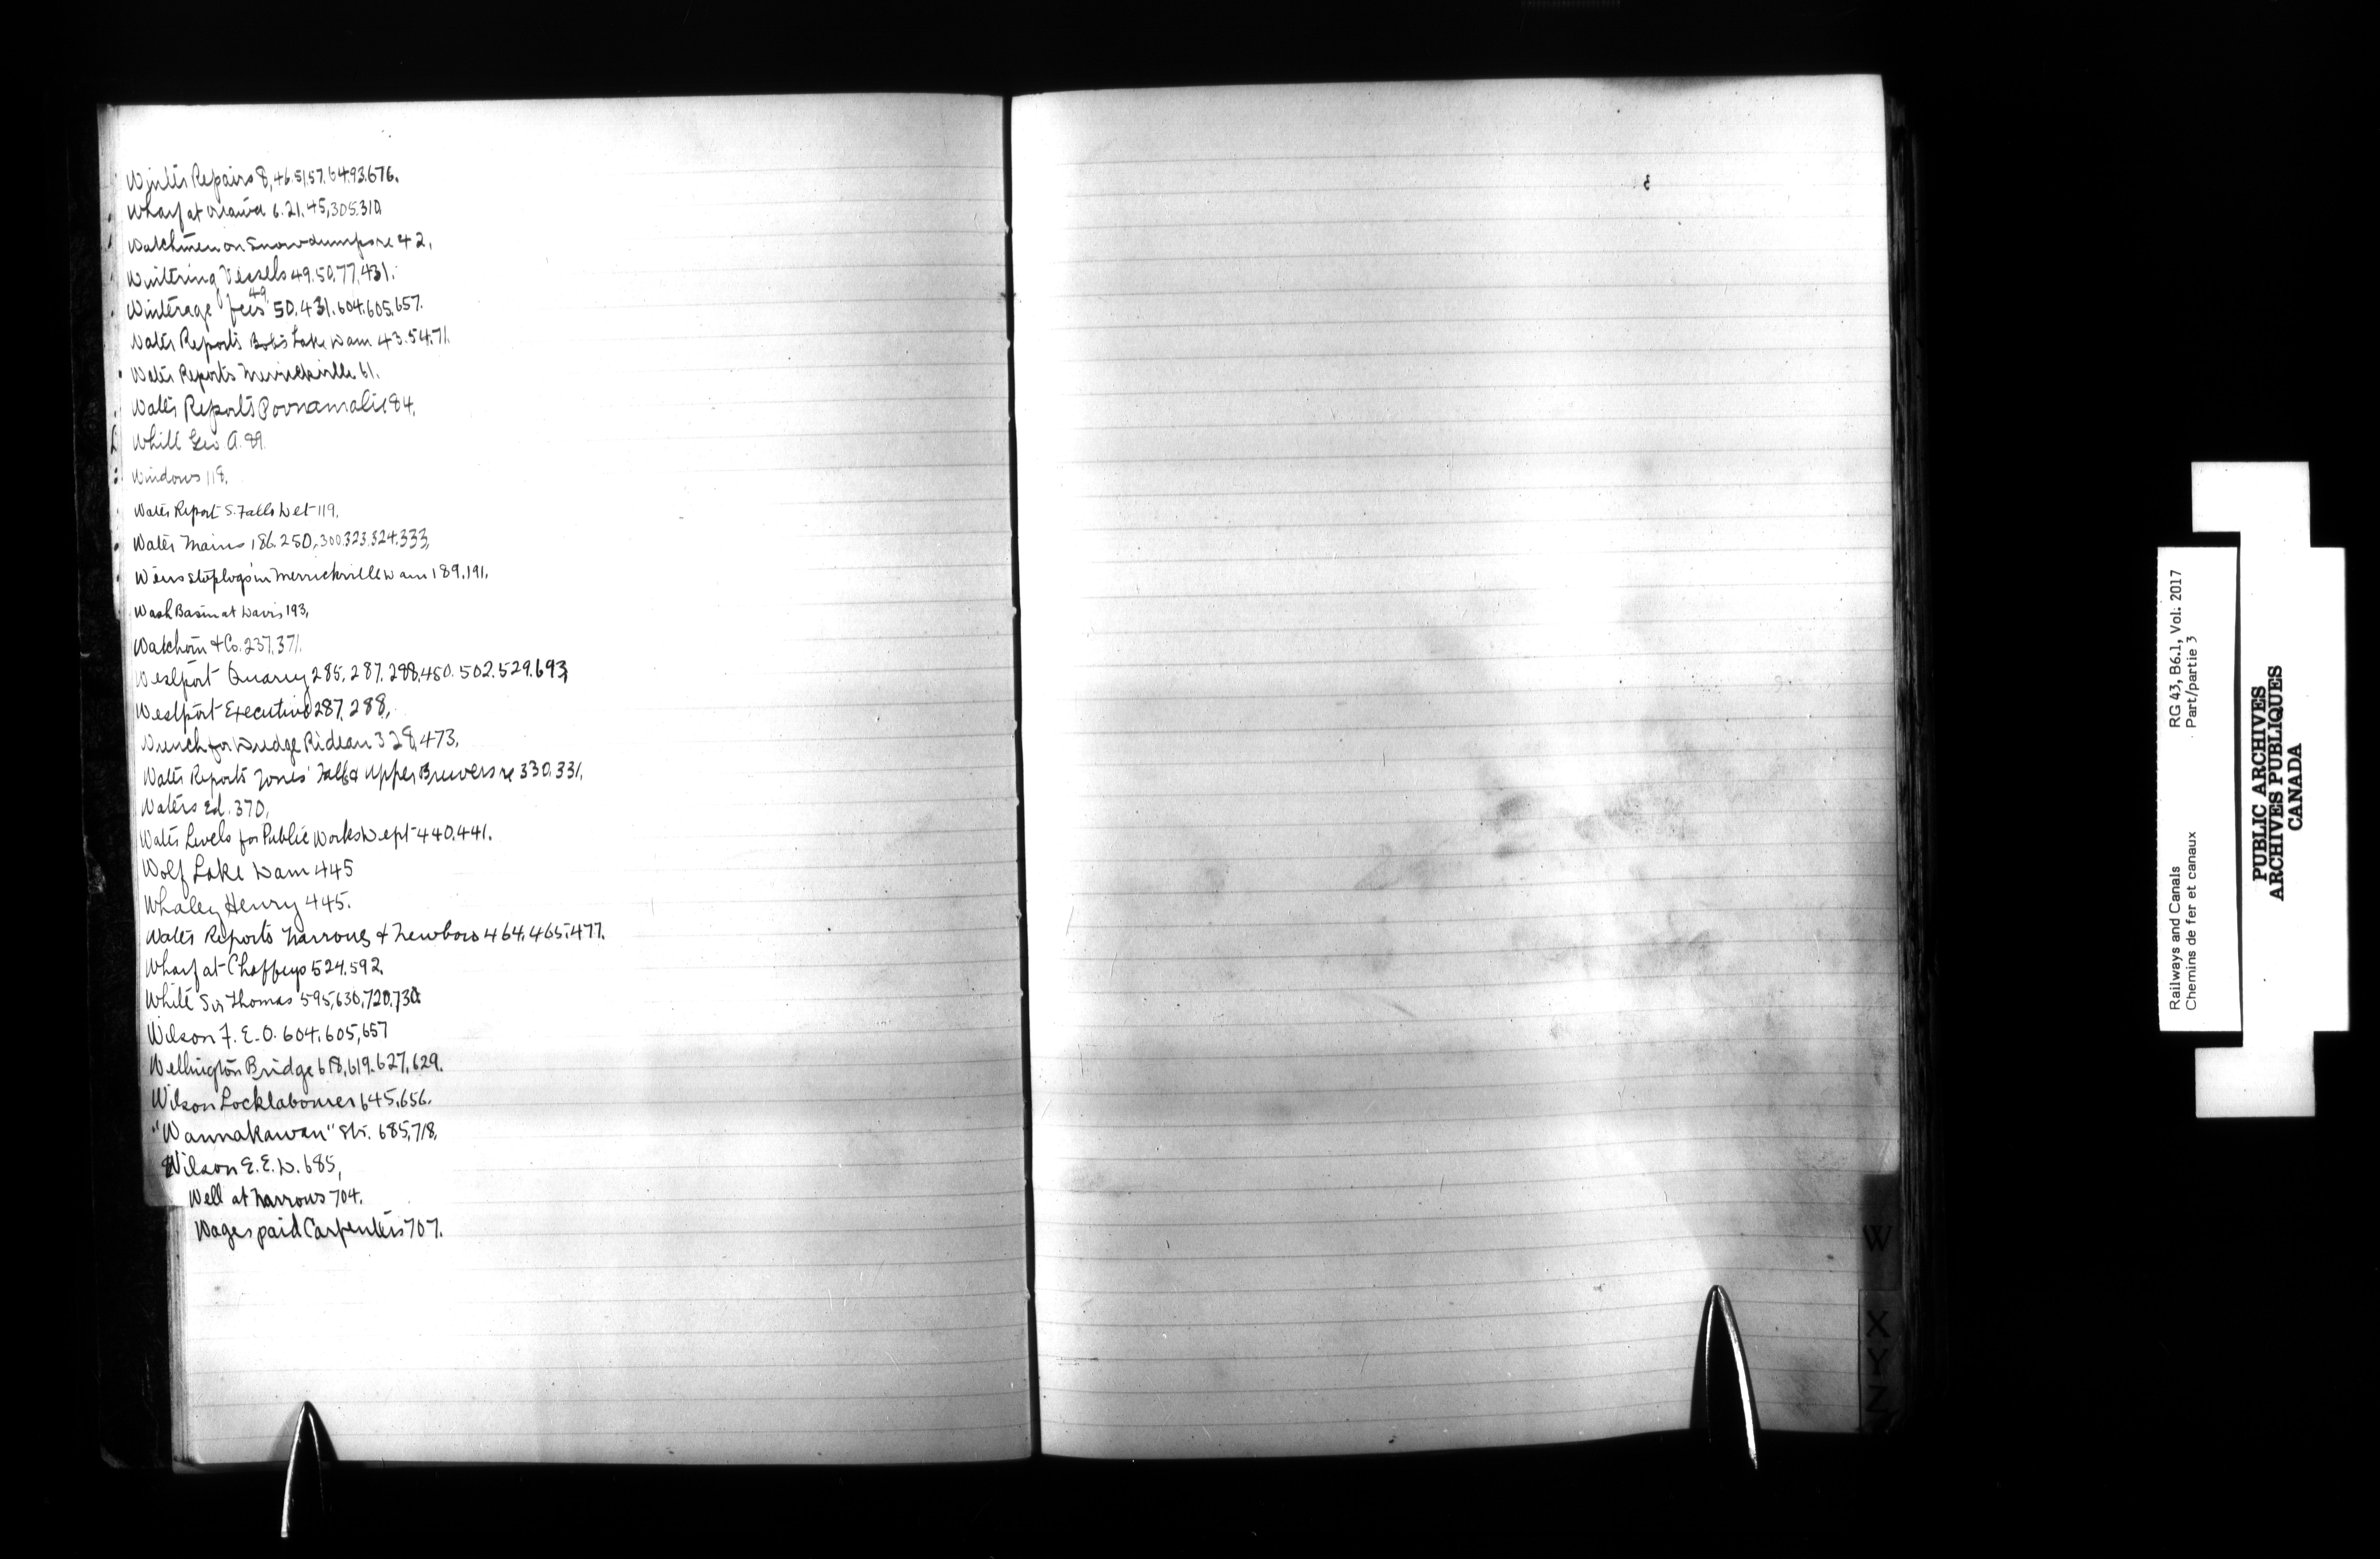 Winter Repairs 8,46.51.57.64.93.676.
Wharf at Ottawa 6.21.45,305.310
Watchmen on Snowdumps re 42,
Wintering Vessels 49.50.77.431.
Winterage fees 49. 50.431.604.605.657.
Water Reports Bobs Lake Dam 43.54.71.
Water Reports Merrickville 61.
Water Reports Poonamalie 84,
White Geo A. 89.
Windows 118,
Water Report S. Falls Det 119,
Water Mains 186.250,300.323.324.333,
Weirs stoplogs in Merrickville Dam 189.191,
Wash Basin at Davis 193,
Watchorn & Co. 237,371.
Westport Quarry 285, 287, 288,450.502.529.693,
Westport Executive 287,288,
Wrench for Dredge Rideau 328,473,
Water Reports Jones' Falls & Upper Brewers re 330.331,
Waters Ed. 370,
Water Levels for Public Works Dept 440.441.
Wolf Lake Dam 445
Whaley Henry 445.
Water Reports Narrows & Newboro 464.465.477.
Wharf at Chaffeys 524.592.
White Sir Thomas 595,630,720,730.
Wilson F. E. O. 604.605,657
Wellington Bridge 618,619.627,629.
Wilson Locklabourer 645,656.
"Wannakawan" Str. 685,718,
Wilson E. E. D. 685,
Well at Narrows 704.
Wages paid Carpenters 707.
W
X
Y
Z
Railways and Canals
Chemins de fer et canaux
RG 43, B6.1, Vol. 2017
Part/partie 3
PUBLIC ARCHIVES
ARCHIVES PUBLIQUES
CANADA